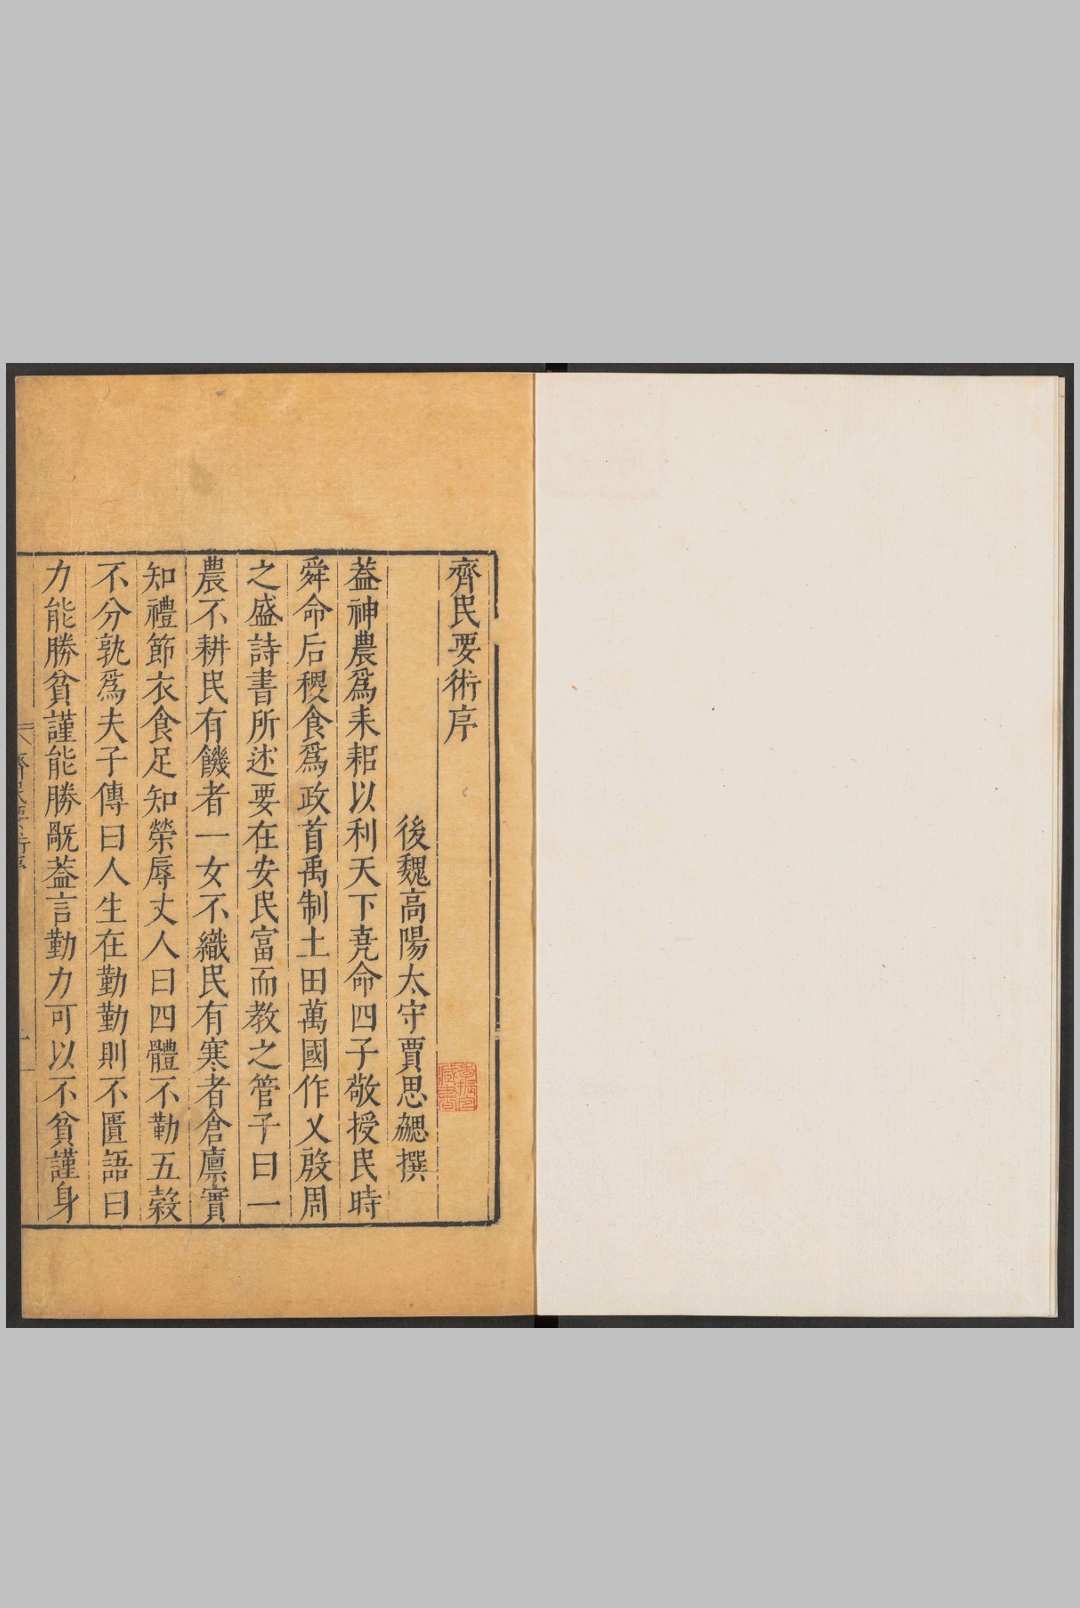 齊民要術序
後魏高陽太守賈思勰撰
葢神農爲耒耜以利天下堯命四子敬授民時
舜命后稷食爲政首禹制土田萬國作乂殷周
之盛詩書所述要在安民富而教之管子曰一
農不耕民有饑者一女不織民有寒者倉廪實
知禮節衣食足知榮辱丈人曰四體不勤五榖
不分孰爲夫子傳曰人生在勤勤則不匱語曰
力能勝貧謹能勝旤葢言勤力可以不貧謹身
齊民要術序